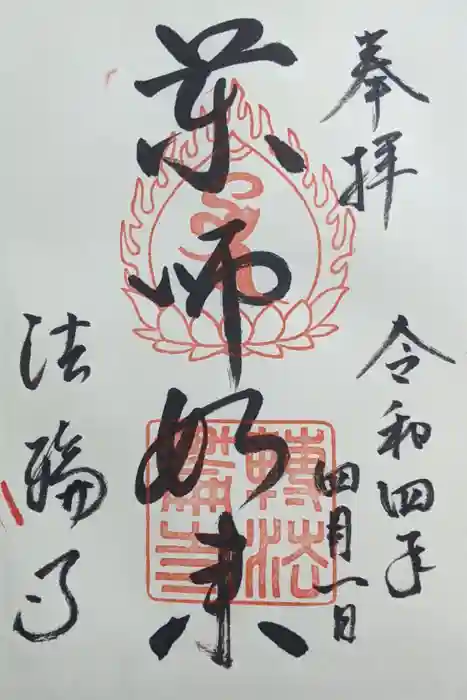 奉拝
令和四年
四月一日
薬師如来
法輪寺
轉法
輪寺